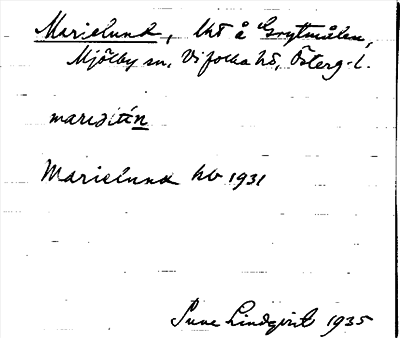 Marielund, lht å Grytmålen,
Mjölby sn, Vifolka hd, Österg. l.
Marielund hb 1931
Sune Lindqvist 1935